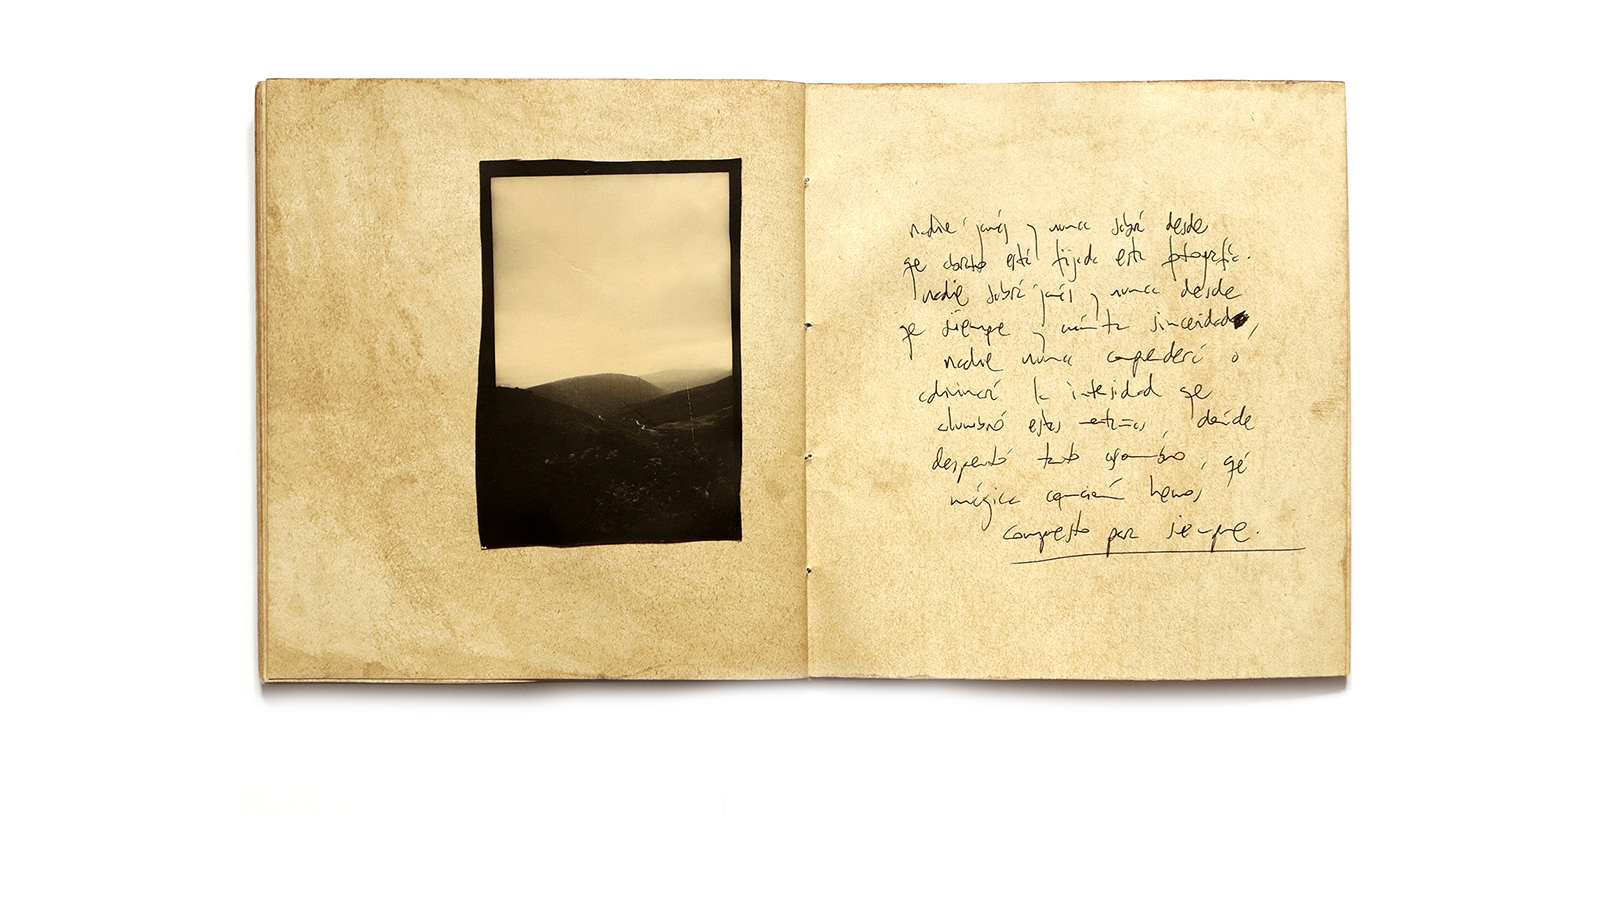 nadie jamás y nunca sabrá desde
qe abrazo está fijada esta fotografía.
nadie sabrá jamás y nunca desde
qe siempre y cuánta sinceridad,
nadie nunca comprenderá o
adivinará la intensidad qe
alumbró estas, dónde
despertó tanto asombro, qé
mágica canción hemos
compuesto para siempre.